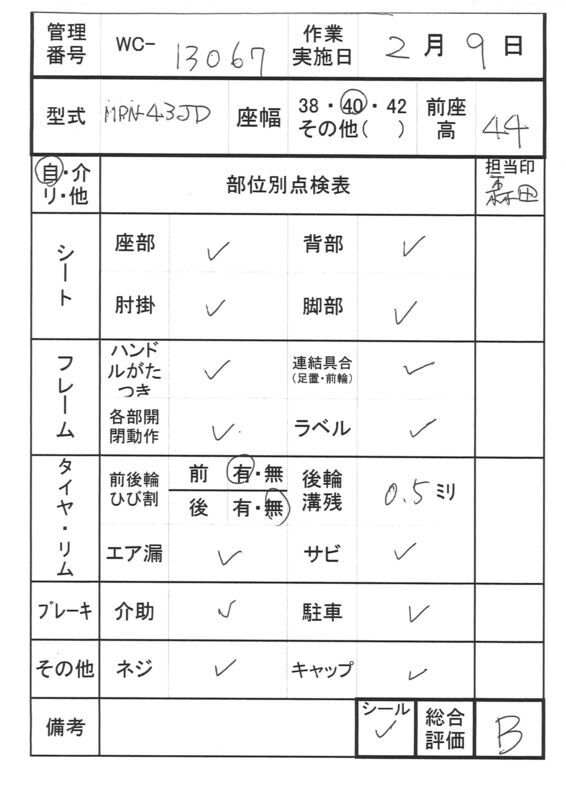 管理番号 WC-13067 作業実施日 2月9日
型式 MPN43JD 座幅 38・40・42 その他( ) 前座高 44
自・介・リ・他 部位別点検表 担当印 森田
シート 座部 ✓ 背部 ✓
肘掛 ✓ 脚部 ✓
フレーム ハンドルがたつき ✓ 連結具合(足置・前輪) ✓
各部開閉動作 ✓ ラベル ✓
タイヤ・リム 前後輪ひび割 前 有・無 後輪溝残 0.5ミリ
後 有・無
エア漏 ✓ サビ ✓
ブレーキ 介助 ✓ 駐車 ✓
その他 ネジ ✓ キャップ ✓
備考 シール ✓ 総合評価 B